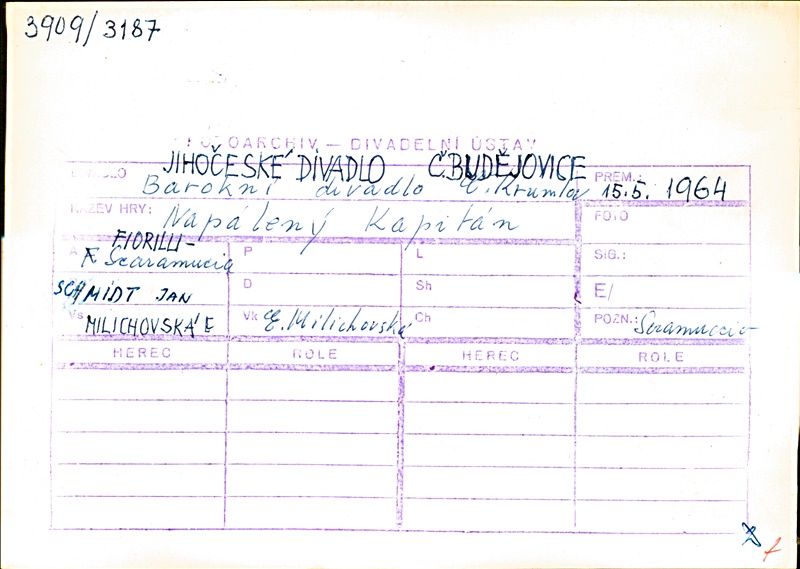 3909/3187
FOTOARCHIV — DIVADELNÍ ÚSTAV
JIHOČESKÉ DIVADLO Č.BUDĚJOVICE
DIVADLO Barokní divadlo Č. Krumlov PREM.: 15.5. 1964
NÁZEV HRY: Napálený Kapitán FOTO
FIORILLI-
A F. Scaramucia P L SIG.:
SCHMIDT JAN D Sh E/
Vs MILICHOVSKÁ E Vk E. Milichovská Ch POZN.:
HEREC ROLE HEREC ROLE